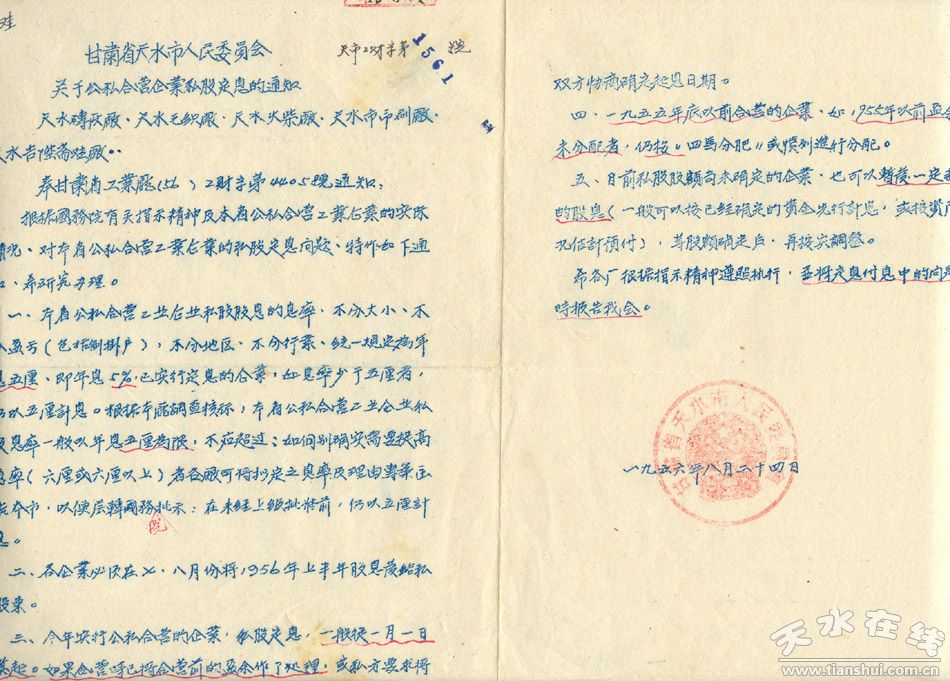 甘肃省天水市人民委员会
天市工财字第1561号
关于公私合营企業私股定息的通知
天水磚灰廠、天水毛织廠、天水火柴廠、天水市印刷廠、
天水吉陞斋鞋廠。
奉甘肃省工業廳(56)工财字第4405號通知：
根据國務院有关指示精神及本省公私合营工業企業的实际
情况、对本省公私合营工業企業的私股定息问题、特作如下通
知、希研究办理。
一、本省公私合营工业企业私股股息的息率、不分大小、不
分盈亏(包括倒掛户)，不分地区、不分行業、统一規定為年
息五厘、即年息5%.已实行定息的企業，如息率少于五厘者，
仍以五厘計息。根据本廳調查核标，本省公私合营工业企业私
股息率一般以年息五厘為限，不应超过；如何別确实需要提高
息率(六厘或六厘以上)者各廠可将拟定之息率及理由專案函
本市，以便层轉國務院批示：在未经上级批准前，仍以五厘計
息。
二、各企業必须在七、八月份将1956年上半年股息发给私
股東。
三、今年实行公私合营的企業，私股定息，一般從一月一日
算起。如果合营時已将合营前的盈余作了处理，或私方要求将
双方协商确定起息日期。
四、一九五五年底以前合营的企業、如1955年以前盈余
未分配者，仍按"四馬分肥"或慣例進行分配。
五、目前私股股額尚未确定的企業、也可以暫發一定
的股息(一般可以按已经确定的資金先行計息，或按資产
况估計預付)，等股額确定后，再按实調整。
希各厂根据指示精神遵照执行，並将定息付息中的问題
時报告我会。
甘肃省天水市人民委员会
一九五六年八月二十四日
天水在线
www.tianshui.com.cn